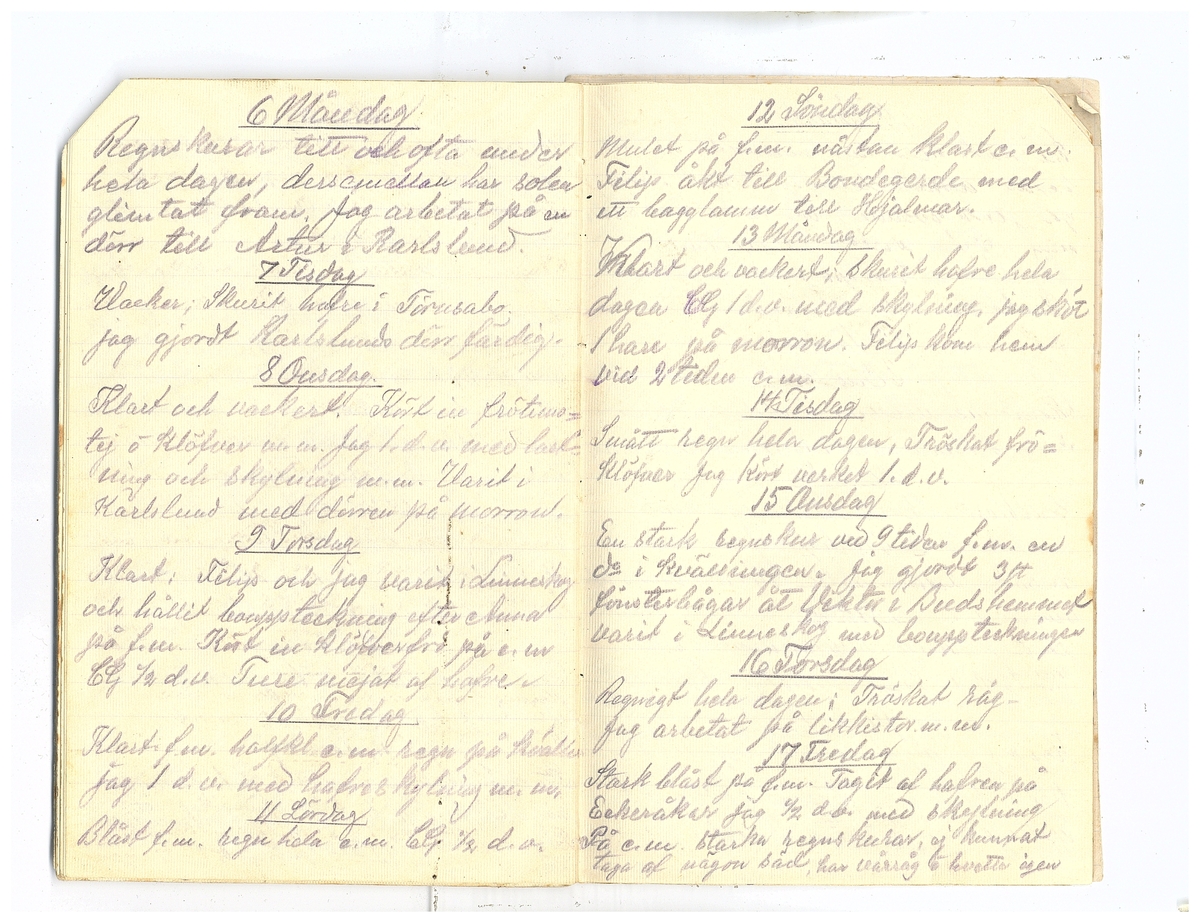 6 Måndag.
Regnskurar titt och ofta under
hela dagen, dessemellan har solen
glimtat fram. Jag arbetat på en
dörr till Artur i Karlslund.
7 Tisdag
Vacker; Skurit hafre i Törnsabo.
jag gjordt Karlslunds dörr färdig.
8 Onsdag.
Klart och vackert. Kört in frötimo=
tej o klöfver m.m. Jag 1. d.v. med last=
ning och skylning m.m. Varit i
Karlslund med dörren på morron.
9 Torsdag
Klart; Filip och jag varit i Linneskog
och hållit bouppteckning efter Anna
på f.m. Kört in klöfverfrö på e.m
CG 1/2 d.v. Ture mäjat af hafre.
10 Fredag
Klart f.m. halfkl e.m. regn på kvällen
Jag 1 d.v. med hafreskylning m.m.
11 Lördag
Blåst f.m. regn hela e.m. CG 1/2 d.v.
12 Söndag
Mulet på f.m. nästan klart e.m.
Filip åkt till Bondegerde med
ett bagglamm till Hjalmar.
13 Måndag
Klart och vackert; skurit hafre hela
dagen CG 1 d.v. med skylning, jag sköt
1 hare på morron. Filip kom hem
vid 2 tiden e.m.
14 Tisdag
Smått regn hela dagen, Tröskat frö=
klöfver Jag kört verket 1. d.v.
15 Onsdag
En stark regnskur vid 9 tiden f.m. en
do i kvällningen. Jag gjordt 3 st
fönsterbågar åt Viktor i Budshemmet
varit i Linneskog med bouppteckningen
16 Torsdag
Regnigt hela dagen; Tröskat råg-
Jag arbetat på likkistor m.m.
17 Fredag
Stark blåst på f.m. Taget af hafren på
Eekeråker jag 1/2 d.v. med skylning
På e.m. starka regnskurar, ej kunnat
taga af någon säd, har vårråg o hvete igen